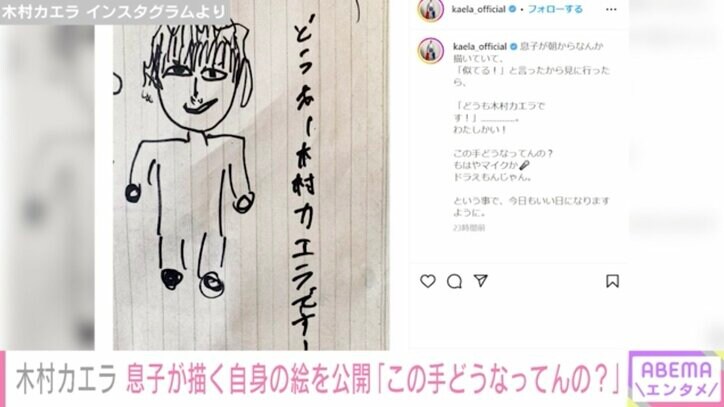 木村カエラ インスタグラムより
どうもー木村カエラですー
kaela_official • フォローする
kaela_official 息子が朝からなんか
描いていて、
「似てる！」と言ったから見に行った
ら、
「どうも木村カエラで
す！」
わたしかい！
この手どうなってんの？
もはやマイクか🎤
ドラえもんじゃん。
という事で、今日もいい日になります
ように。
23時間前
木村カエラ 息子が描く自身の絵を公開「この手どうなってんの？」
ABEMA
エンタメ